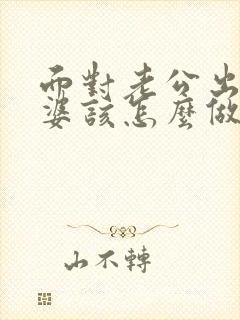 面對老公出
婆該怎麼做
山不轉